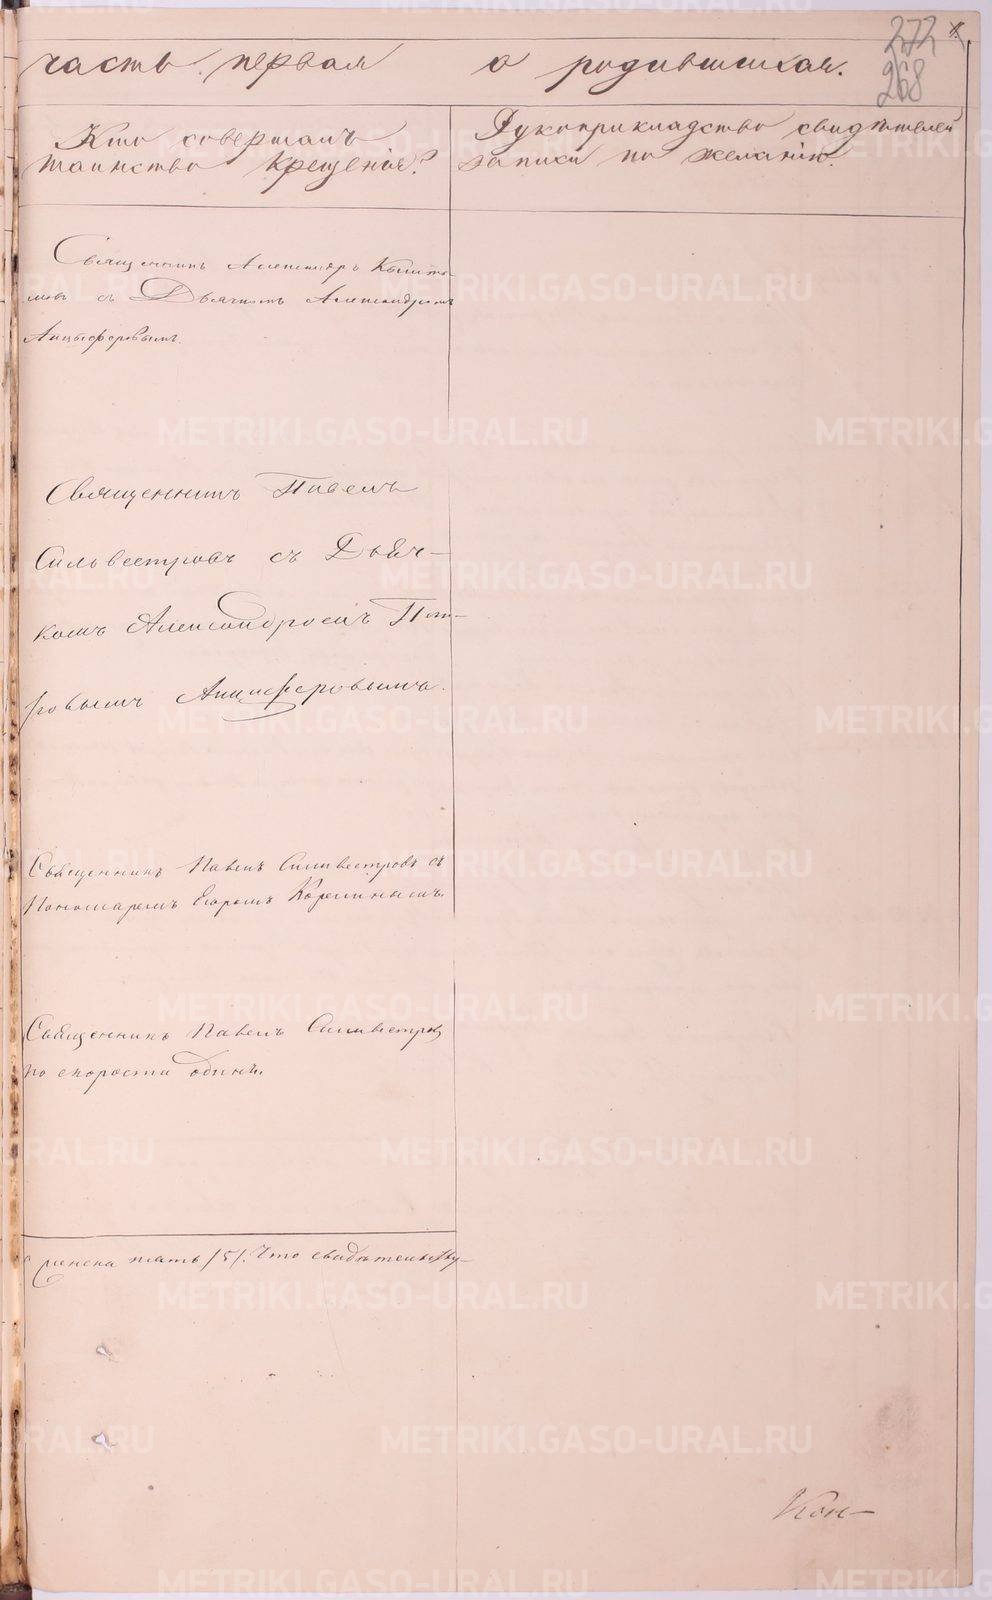 272
268
часть первая о родившихся.
Кто совершалъ
таинство крещенія?
Рукоприкладство свидѣтелей
записи по желанію.
Священникъ Александръ
съ Дьячкомъ Александромъ
Анциферовымъ.
Священникъ Павелъ
Сильвестровъ съ Дьяч-
комъ Александромъ Пет-
ровымъ Анциферовымъ.
Священникъ Павелъ Сильвестровъ съ
Пономаремъ Егоромъ
Священникъ Павелъ Сильвестровъ
по скорости одинъ.
женска пять /5/. Что свидѣтельству-
Кон-
METRIKI.GASO-URAL.RU